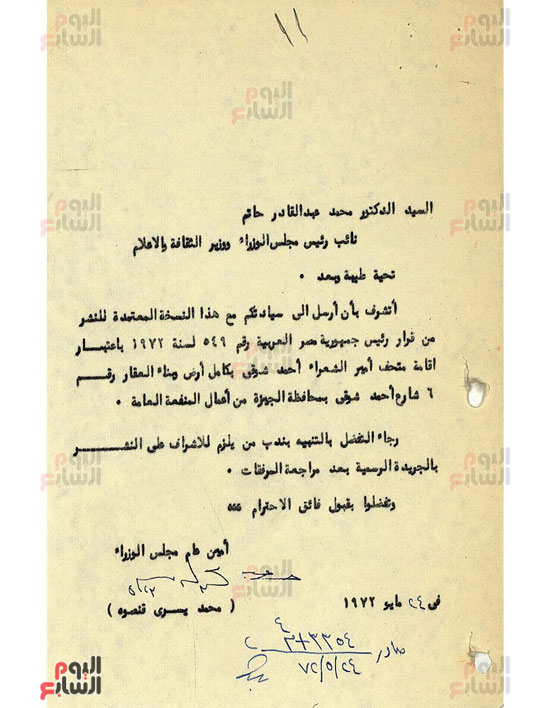 ١١
السيد الدكتور محمد عبدالقادر حاتم
نائب رئيس مجلس الوزراء ووزير الثقافة والاعلام
تحية طيبة وبعد ٠
أتشرف بأن أرسل الى سيادتكم مع هذا النسخة المعتمدة للنشر
من قرار رئيس جمهورية مصر العربية رقم ٥٤٩ لسنة ١٩٧٢ باعتبار
اقامة متحف أمير الشعراء أحمد شوقى بكامل أرض وبناء العقار رقم
٦ شارع أحمد شوقى بمحافظة الجيزة من أعمال المنفعة العامة ٠
رجاء التفضل بالتنبيه بندب من يلزم للاشراف على النشر
بالجريدة الرسمية بعد مراجعة المرفقات ٠
وتفضلوا بقبول فائق الاحترام ٥٥٥
أمين عام مجلس الوزراء
( محمد يسرى قنصوه )
فى ٢٤ مايو ١٩٧٢
صادر
٣٣٥٤+٣
٧٢/٥/٢٤
اليوم السابع